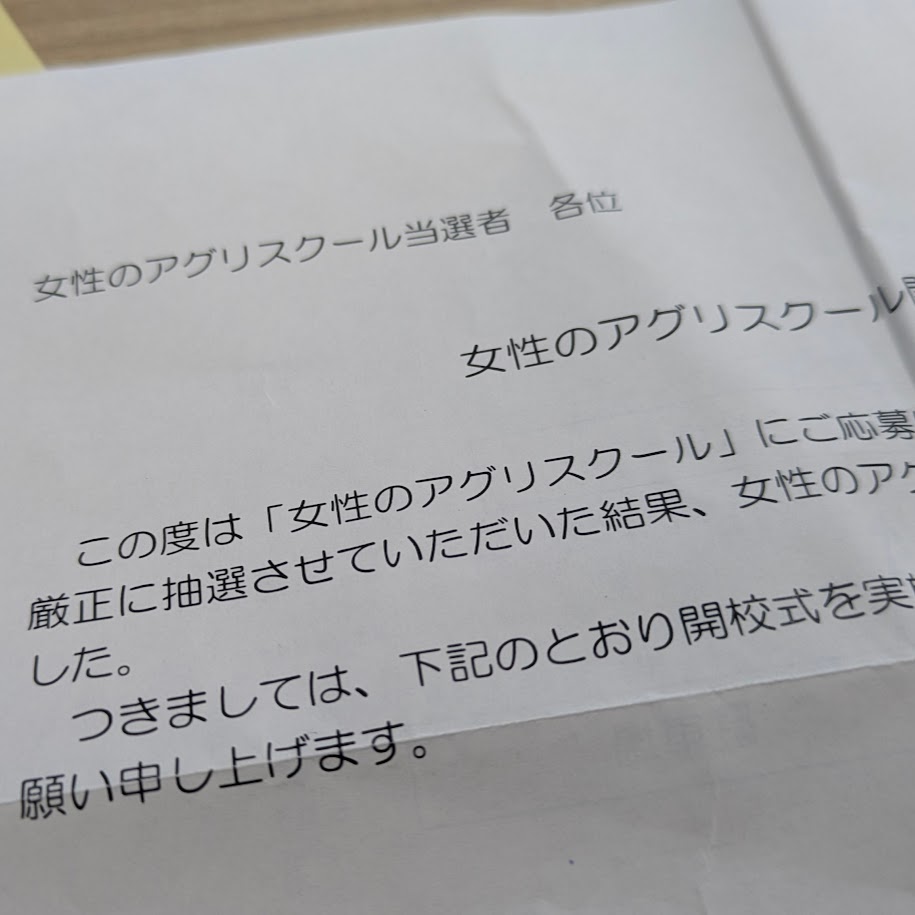 女性のアグリスクール当選者　各位
女性のアグリスクール
この度は「女性のアグリスクール」にご応募
厳正に抽選させていただいた結果、女性のアグ
した。
つきましては、下記のとおり開校式を実
願い申し上げます。